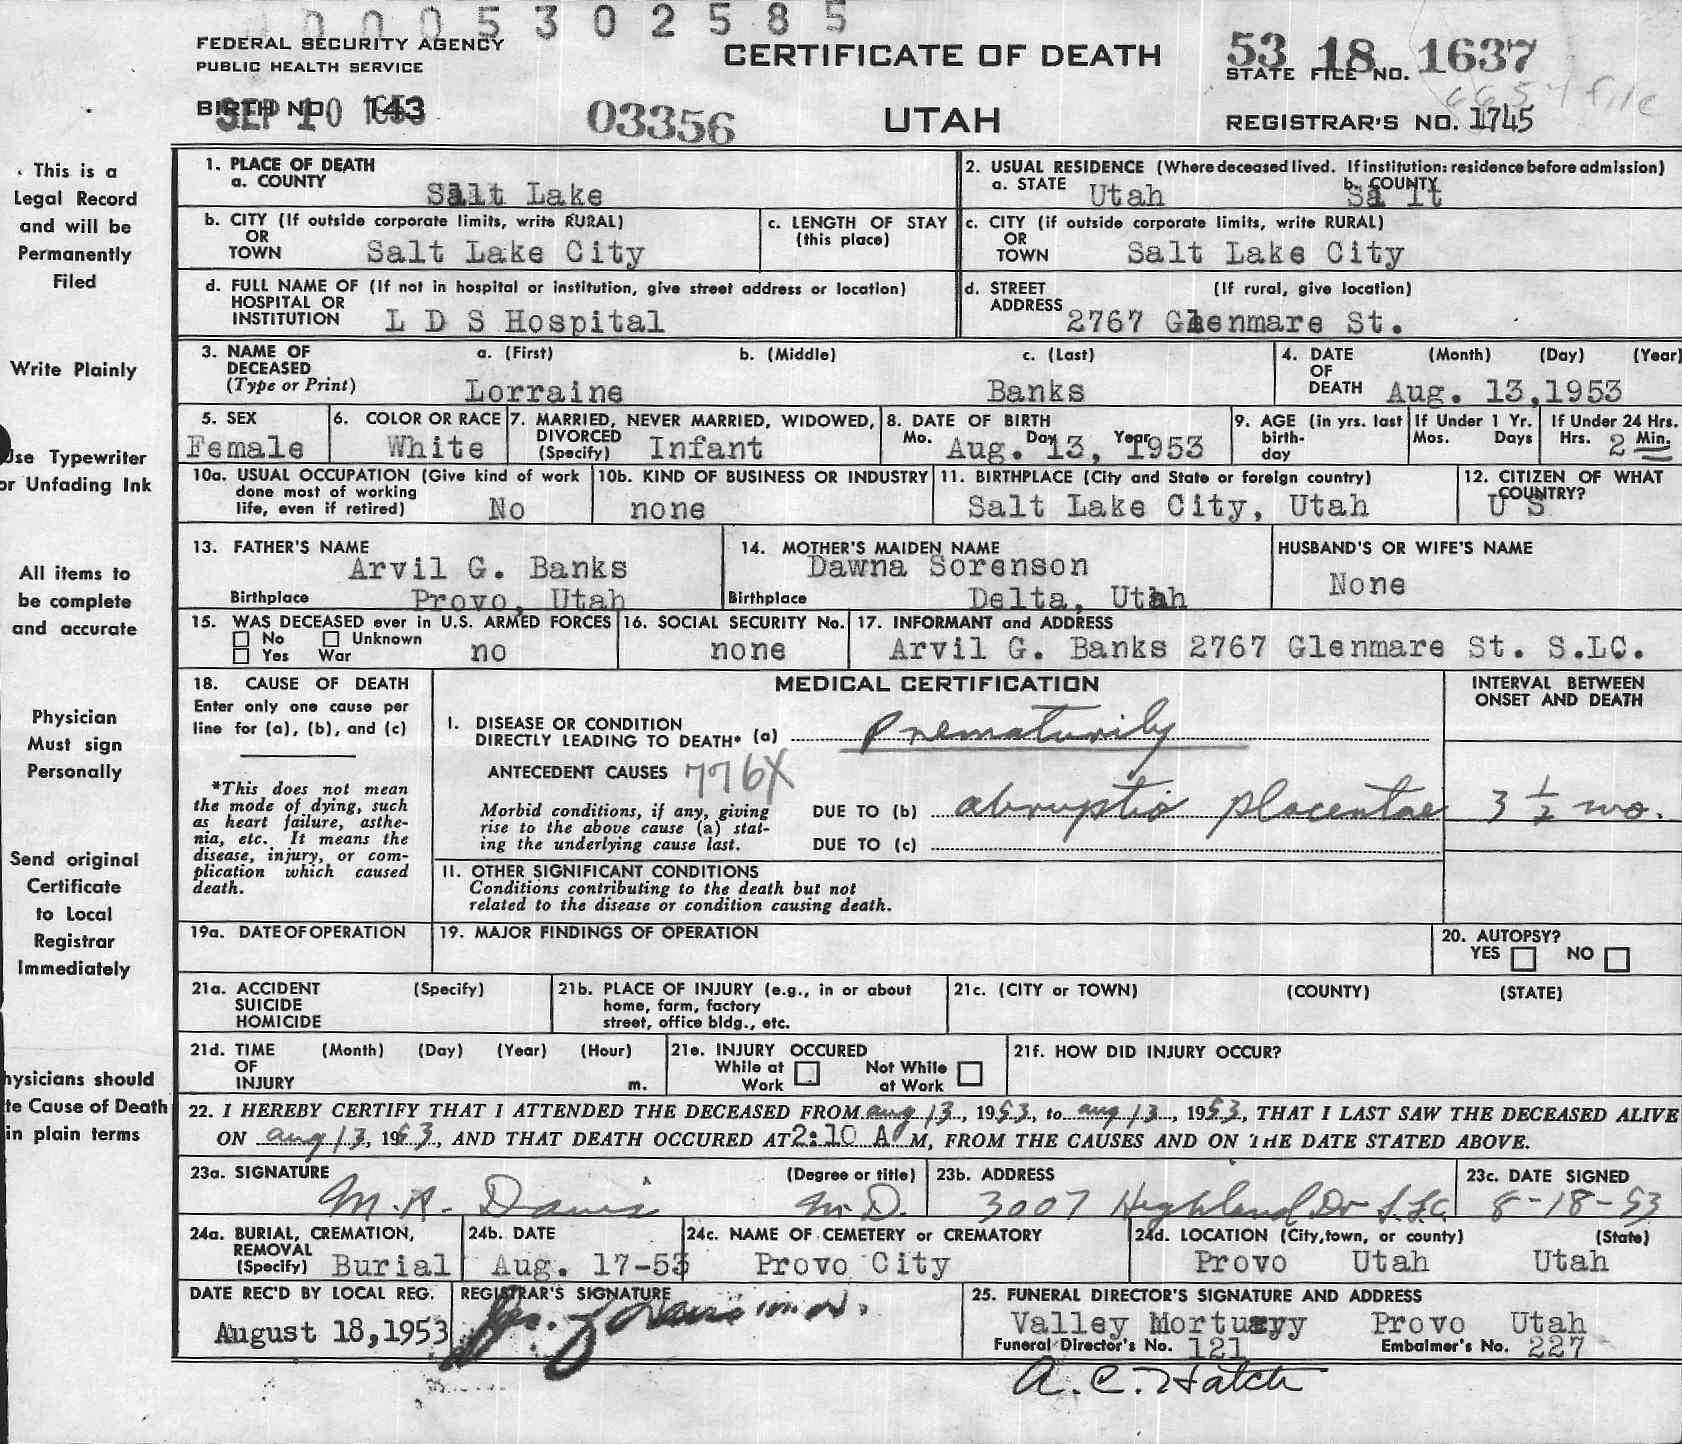 0005302585
FEDERAL SECURITY AGENCY
PUBLIC HEALTH SERVICE
CERTIFICATE OF DEATH
53 18 1637
STATE FILE NO.
6654 file
BIRTH NO. 143
SEP 10 1953
03356
UTAH
REGISTRAR'S NO. 1745
This is a
Legal Record
and will be
Permanently
Filed
Write Plainly
Use Typewriter
or Unfading Ink
All items to
be complete
and accurate
Physician
Must sign
Personally
Send original
Certificate
to Local
Registrar
Immediately
hysicians should
te Cause of Death
in plain terms
1. PLACE OF DEATH
a. COUNTY Salt Lake
2. USUAL RESIDENCE (Where deceased lived. If institution: residence before admission)
a. STATE Utah b. COUNTY Sa lt
b. CITY (If outside corporate limits, write RURAL)
OR
TOWN Salt Lake City
c. LENGTH OF STAY
(this place)
c. CITY (if outside corporate limits, write RURAL)
OR
TOWN Salt Lake City
d. FULL NAME OF (If not in hospital or institution, give street address or location)
HOSPITAL OR
INSTITUTION L D S Hospital
d. STREET (If rural, give location)
ADDRESS 2767 Glenmare St.
3. NAME OF a. (First) b. (Middle) c. (Last)
DECEASED
(Type or Print) Lorraine Banks
4. DATE (Month) (Day) (Year)
OF
DEATH Aug. 13,1953
5. SEX
Female
6. COLOR OR RACE
White
7. MARRIED, NEVER MARRIED, WIDOWED,
DIVORCED
(Specify) Infant
8. DATE OF BIRTH
Mo. Day Year
Aug. 13, 1953
9. AGE (in yrs. last
birth-
day
If Under 1 Yr.
Mos. Days
If Under 24 Hrs.
Hrs. 2 Min.
10a. USUAL OCCUPATION (Give kind of work
done most of working
life, even if retired) No
10b. KIND OF BUSINESS OR INDUSTRY
none
11. BIRTHPLACE (City and State or foreign country)
Salt Lake City, Utah
12. CITIZEN OF WHAT
COUNTRY?
U S
13. FATHER'S NAME
Arvil G. Banks
Birthplace Provo, Utah
14. MOTHER'S MAIDEN NAME
Dawna Sorenson
Birthplace Delta, Utah
HUSBAND'S OR WIFE'S NAME
None
15. WAS DECEASED ever in U.S. ARMED FORCES
No Unknown
Yes War no
16. SOCIAL SECURITY No.
none
17. INFORMANT and ADDRESS
Arvil G. Banks 2767 Glenmare St. S.LC.
18. CAUSE OF DEATH
Enter only one cause per
line for (a), (b), and (c)
*This does not mean
the mode of dying, such
as heart failure, asthe-
nia, etc. It means the
disease, injury, or com-
plication which caused
death.
MEDICAL CERTIFICATION
INTERVAL BETWEEN
ONSET AND DEATH
I. DISEASE OR CONDITION
DIRECTLY LEADING TO DEATH* (a) Prematurity
ANTECEDENT CAUSES 776X
Morbid conditions, if any, giving
rise to the above cause (a) stat-
ing the underlying cause last.
DUE TO (b) abruptio placentae 3 1/2 mo.
DUE TO (c)
II. OTHER SIGNIFICANT CONDITIONS
Conditions contributing to the death but not
related to the disease or condition causing death.
19a. DATE OF OPERATION
19. MAJOR FINDINGS OF OPERATION
20. AUTOPSY?
YES NO
21a. ACCIDENT (Specify)
SUICIDE
HOMICIDE
21b. PLACE OF INJURY (e.g., in or about
home, farm, factory
street, office bldg., etc.
21c. (CITY or TOWN) (COUNTY) (STATE)
21d. TIME (Month) (Day) (Year) (Hour)
OF
INJURY m.
21e. INJURY OCCURED
While at Not While
Work at Work
21f. HOW DID INJURY OCCUR?
22. I HEREBY CERTIFY THAT I ATTENDED THE DECEASED FROM aug 13, 1953, to aug 13, 1953, THAT I LAST SAW THE DECEASED ALIVE
ON aug 13, 1953, AND THAT DEATH OCCURED AT 2:10 A M, FROM THE CAUSES AND ON THE DATE STATED ABOVE.
23a. SIGNATURE (Degree or title)
M. R. Davis M.D.
23b. ADDRESS
3007 Highland Dr S.L.C.
23c. DATE SIGNED
8-18-53
24a. BURIAL, CREMATION,
REMOVAL
(Specify) Burial
24b. DATE
Aug. 17-53
24c. NAME OF CEMETERY or CREMATORY
Provo City
24d. LOCATION (City, town, or county) (State)
Provo Utah Utah
DATE REC'D BY LOCAL REG.
August 18,1953
REGISTRAR'S SIGNATURE
25. FUNERAL DIRECTOR'S SIGNATURE AND ADDRESS
Valley Mortuary Provo Utah
Funeral Director's No. 121 Embalmer's No. 227
A. C. Hatch